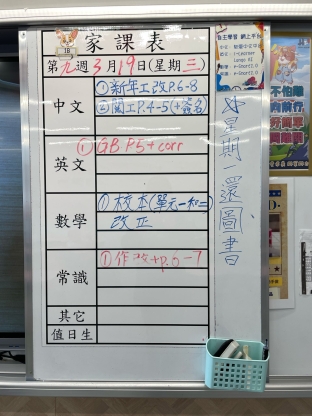 家課表
第九週3月19日(星期三)
中文
①新年工改P.6-8
②閱工P.4-5(+簽名)
英文
①GB P5 + corr
數學
①校本(單元一和二)
改正
常識
①作改+p.6-7
其它
值日生
星期一還圖書
自主學習 網上平台
不怕難
向前行